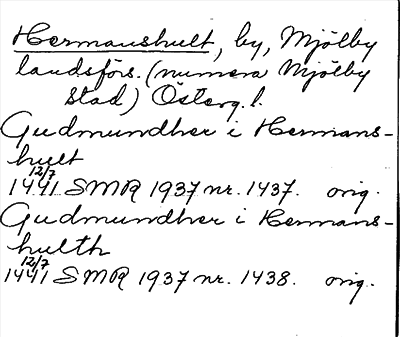 Hermanshult, by, Mjölby
landsförs. (numera Mjölby
stad) Österg. l.
Gudmundher i Hermans-
hult
12/7
1441 SMR 1937 nr. 1437. orig.
Gudmundher i Hermans-
hulth
12/7
1441 SMR 1937 nr. 1438. orig.